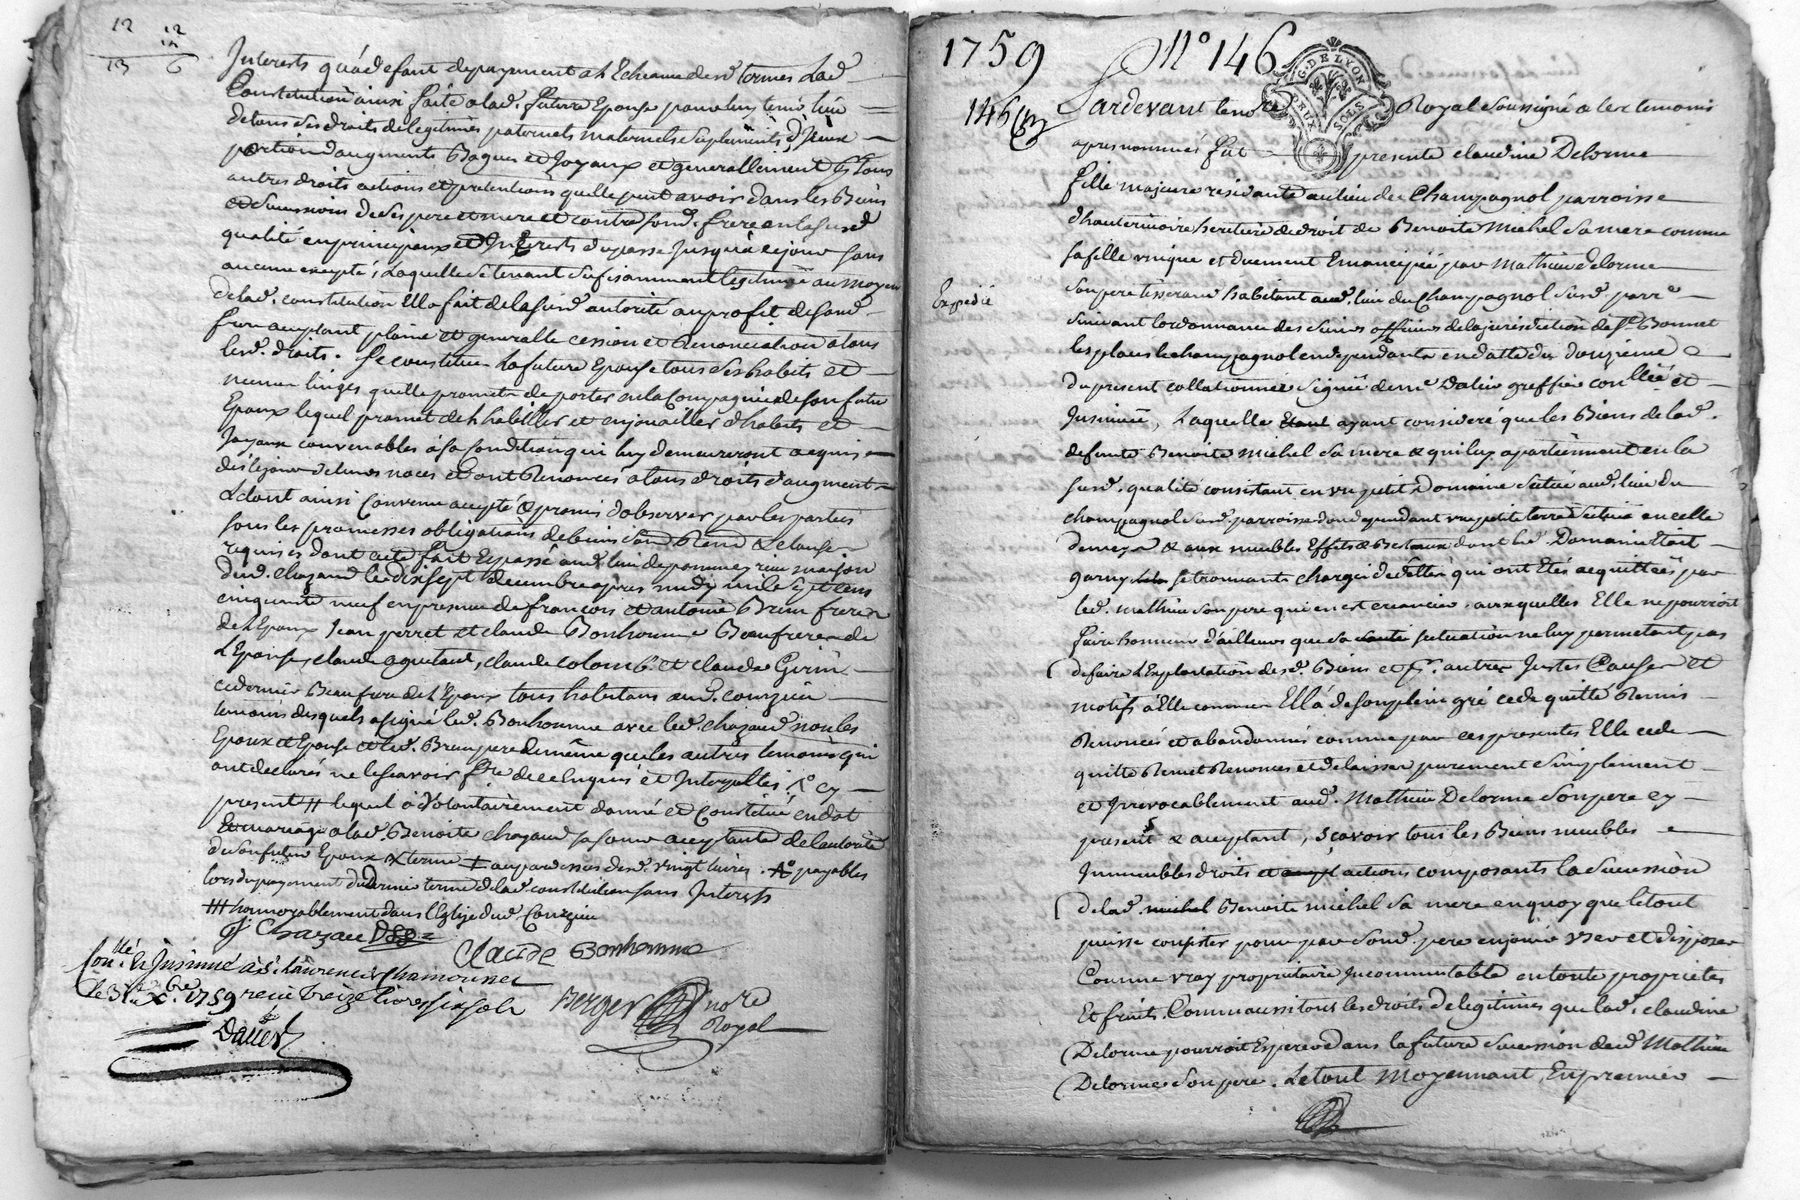 12 12
13 6
Interests qu'ádefaut depayement a l'Echeance desd termes Lad
Constitution ainsi faite alad. future Epouse pour luy tenir lieu
detous ses droits delegitimes paternels maternels suplements d'Iceux
portion daugments Bagues et Joyaux et generallement tous
autres droits actions et pretentions quelle peut avoir dans les Biens
et successions de ses pere et mere et contre sond. frere en lasusd
qualité en principaux et Interests du passé Jusqu'à cejour sans
aucune exepté, Laquelle se tenant sufisamment legitimée au moyen
delad. constitution Ella fait delasusd autorité au profit desond
frere aceptant pleine et generalle cession et Renonciation atous
lesd. droits. Se constitue la future Epouse tous ses habits et
menus linges quelle promet de porter en la Compagnie de son futur
Epoux lequel promet de l'habiller et enjouailler d'habits et
Joyaux convenables à sa condition qui luy demeureront acquis
dès lejour de leurs noces et ont Renoncés a tous droits d'augment
Ledout ainsi Convenu accepté & promis d'observer par les parties
sous les promesses obligations de biens Renon & clauses
requises dont acte fait Et passé aud lieu de pommey maison
dud. chazaud le dixsept decembre après midy mile sept cens
cinquante neuf en presence de francois et antoine Brun freres
de l'Epoux Jean perret et claude Bonhomme Beaufreres de
L'Epouse, claude aguetant, claude colomb. et claude Girin
cedernier Beaufrere de l'Epoux tous habitans aud. courzieu
temoins desquels a signé led. Bonhomme avec led. chazaud non les
Epoux et Epouse et led. Brun pere de même que les autres temoins qui
ont declarés ne le scavoir fre de ce Enquis et Interpellés cy
present # lequel à volontairement donné et Constitué en dot
Et mariage a lad. Benoite chazaud sa soeur acceptante de l'autorité
de son futur Epoux X terme au par dessus desd. vingt livres. payables
lors du payement du dernier terme de lad. constitution sans Interets
### honnorablement dans l'Eglise dud Courzieu
Chazaud
Claude Bonhomme
Conllé & Insinué à St. Laurent de Chamousset
le 31e Xbre 1759 receu treize livres six sols
Berger nore
Royal
Dalier
1759 No 146
146
G. DE LYON
DEUX SOLS
Pardevant le nore Royal soussigné & les temoins
apres nommés fut presente claudine Delorme
fille majeure residante au lieu de Champagnol parroisse
d'hauterivoire heritiere de droit de Benoite Michel sa mere comme
sa fille unique et duement Emancipée par Mathieu delorme
Expedié
Son pere tisserand habitant aud. lieu du Champagnol susd. parre
suivant l'ordonnance des sieurs officiers de la jurisdiction de St Bonnet
les places le champagnol en dependants en datte du douzieme
du present collationnée signée de me Dalier greffier conllée et
Insinuée, Laquelle Etant ayant consideré que les Biens de lad.
defunte Benoite Michel sa mere & qui luy apartiennent en la
susd. qualité consistant en un petit Domaine scitué aud. lieu du
champagnol susd. parroisse dont dependant une petite terre scituée en celle
de meys & aux meubles Effets & Bestiaux dont led. Domaine Etait
garny se trouvants chargés de dettes qui ont Etés acquittées par
led. Mathieu son pere qui en est creancier, auxquelles Elle ne pourroit
faire honneur d'ailleurs que sa situation ne luy permetant pas
de faire l'Exploitation desd. Biens et pr. autres Justes Causes et
motifs à Elle connus Ell'a de son plein gré cedé quitté Remis
Renoncés et abandonnés comme par ces presentes Elle cede
quitte Remet Renonce et delaisse purement Simplement
et Irrevocablement aud. Mathieu Delorme son pere cy
present & acceptant, sçavoir tous les Biens meubles
Immeubles droits et actions composants la succession
de lad. michel Benoite michel sa mere en quoy que le tout
puisse consister pour par sond. pere en jouir User et disposer
Comme vray proprietaire Incommutable en toute proprietes
Et fruits. Comm'aussi tous les droits de legitimes que lad. claudine
Delorme pourroit Esperer dans la future succession dud Mathieu
Delorme son pere. Le tout Moyennant, En premier